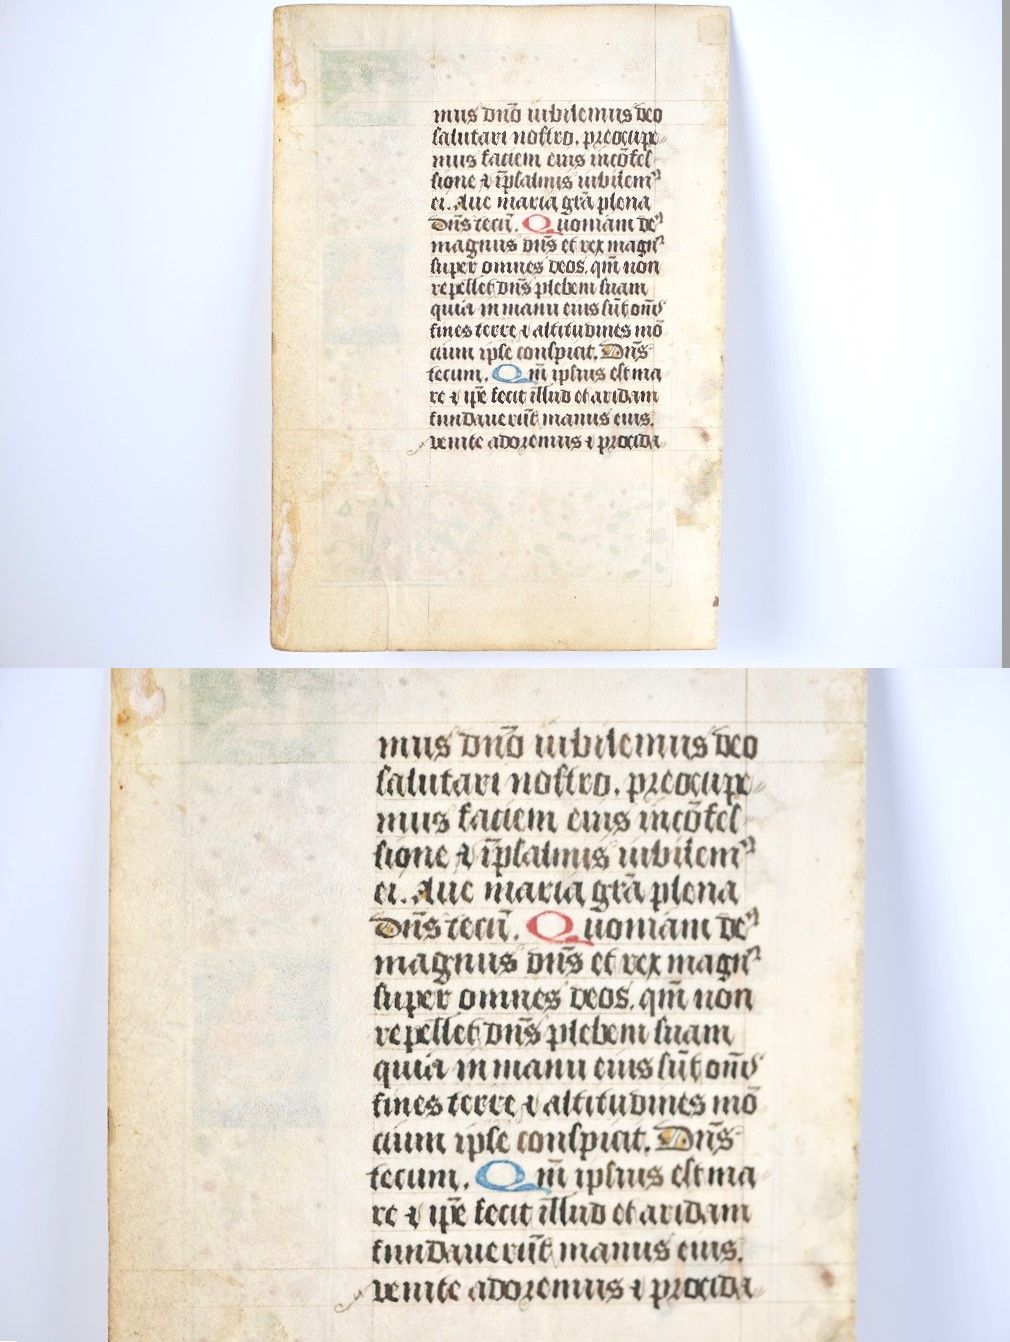 mus dn̄o iubilemus deo
salutari nostro. preocupe
mus faciem eius incōfes
sione ⁊ īpsalmis iubilemꝰ
ei. Aue maria grā plena
dn̄s tecū. Quoniam deꝰ
magnus dn̄s et rex magnꝰ
super omnes deos. qm̄ non
repellet dn̄s plebem suam
quia in manu eius sūt om̄s
fines terre ⁊ altitudines mō
cium ipse conspicit. Dn̄s
tecum. Qm̄ ipsius est ma
re ⁊ ip̄e fecit illud et aridam
fundauerūt manus eius.
venite adoremus ⁊ procida